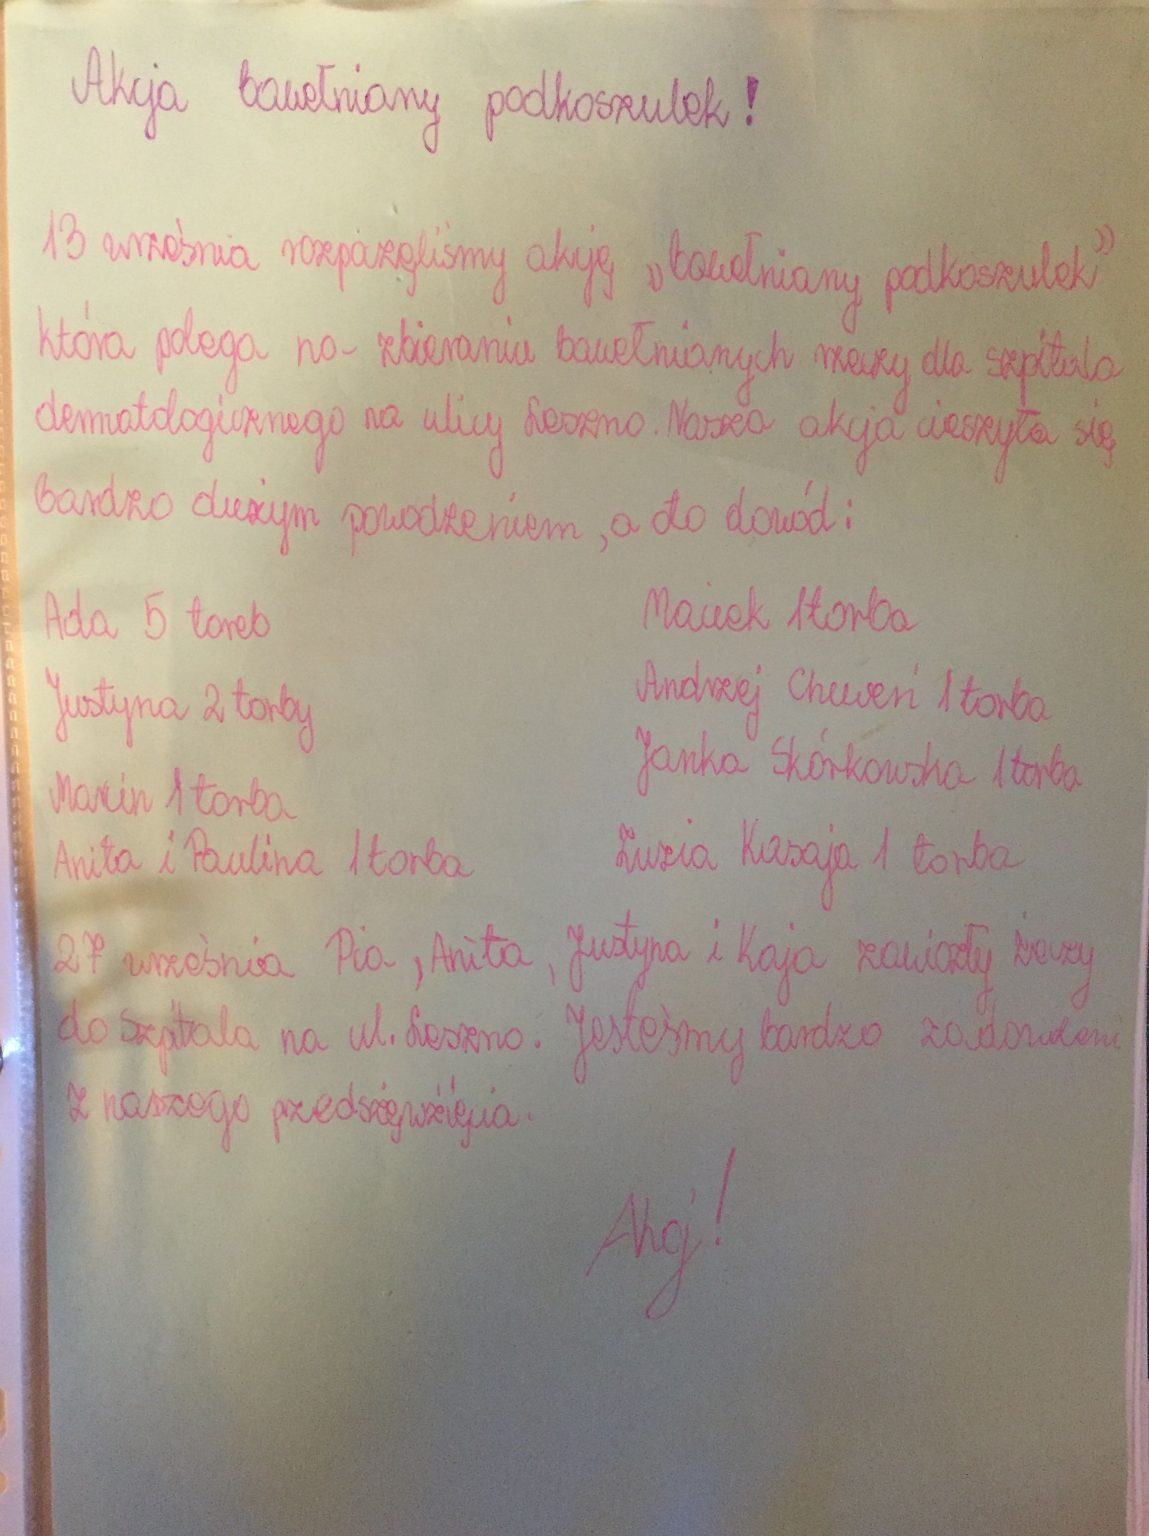 Akcja bawełniany podkoszulek!
13 września rozpazęliśmy akcję „bawełniany podkoszulek”
która polega na- zbieraniu bawełnianych rzeczy dla szpitala
dermatologicznego na ulicy Leszno. Nasza akcja cieszyła się
bardzo dużym powodzeniem, a oto dowód:
Ada 5 toreb
Justyna 2 torby
Marcin 1 torba
Anita i Paulina 1 torba
Maciek 1 torba
Andrzej 1 torba
Janka Skórkowska 1 torba
Zuzia 1 torba
27 września Pia, Anita, Justyna i Kaja zawiozły rzeczy
do szpitala na ul. Leszno. Jesteśmy bardzo zadowoleni
z naszego
Ahoj!